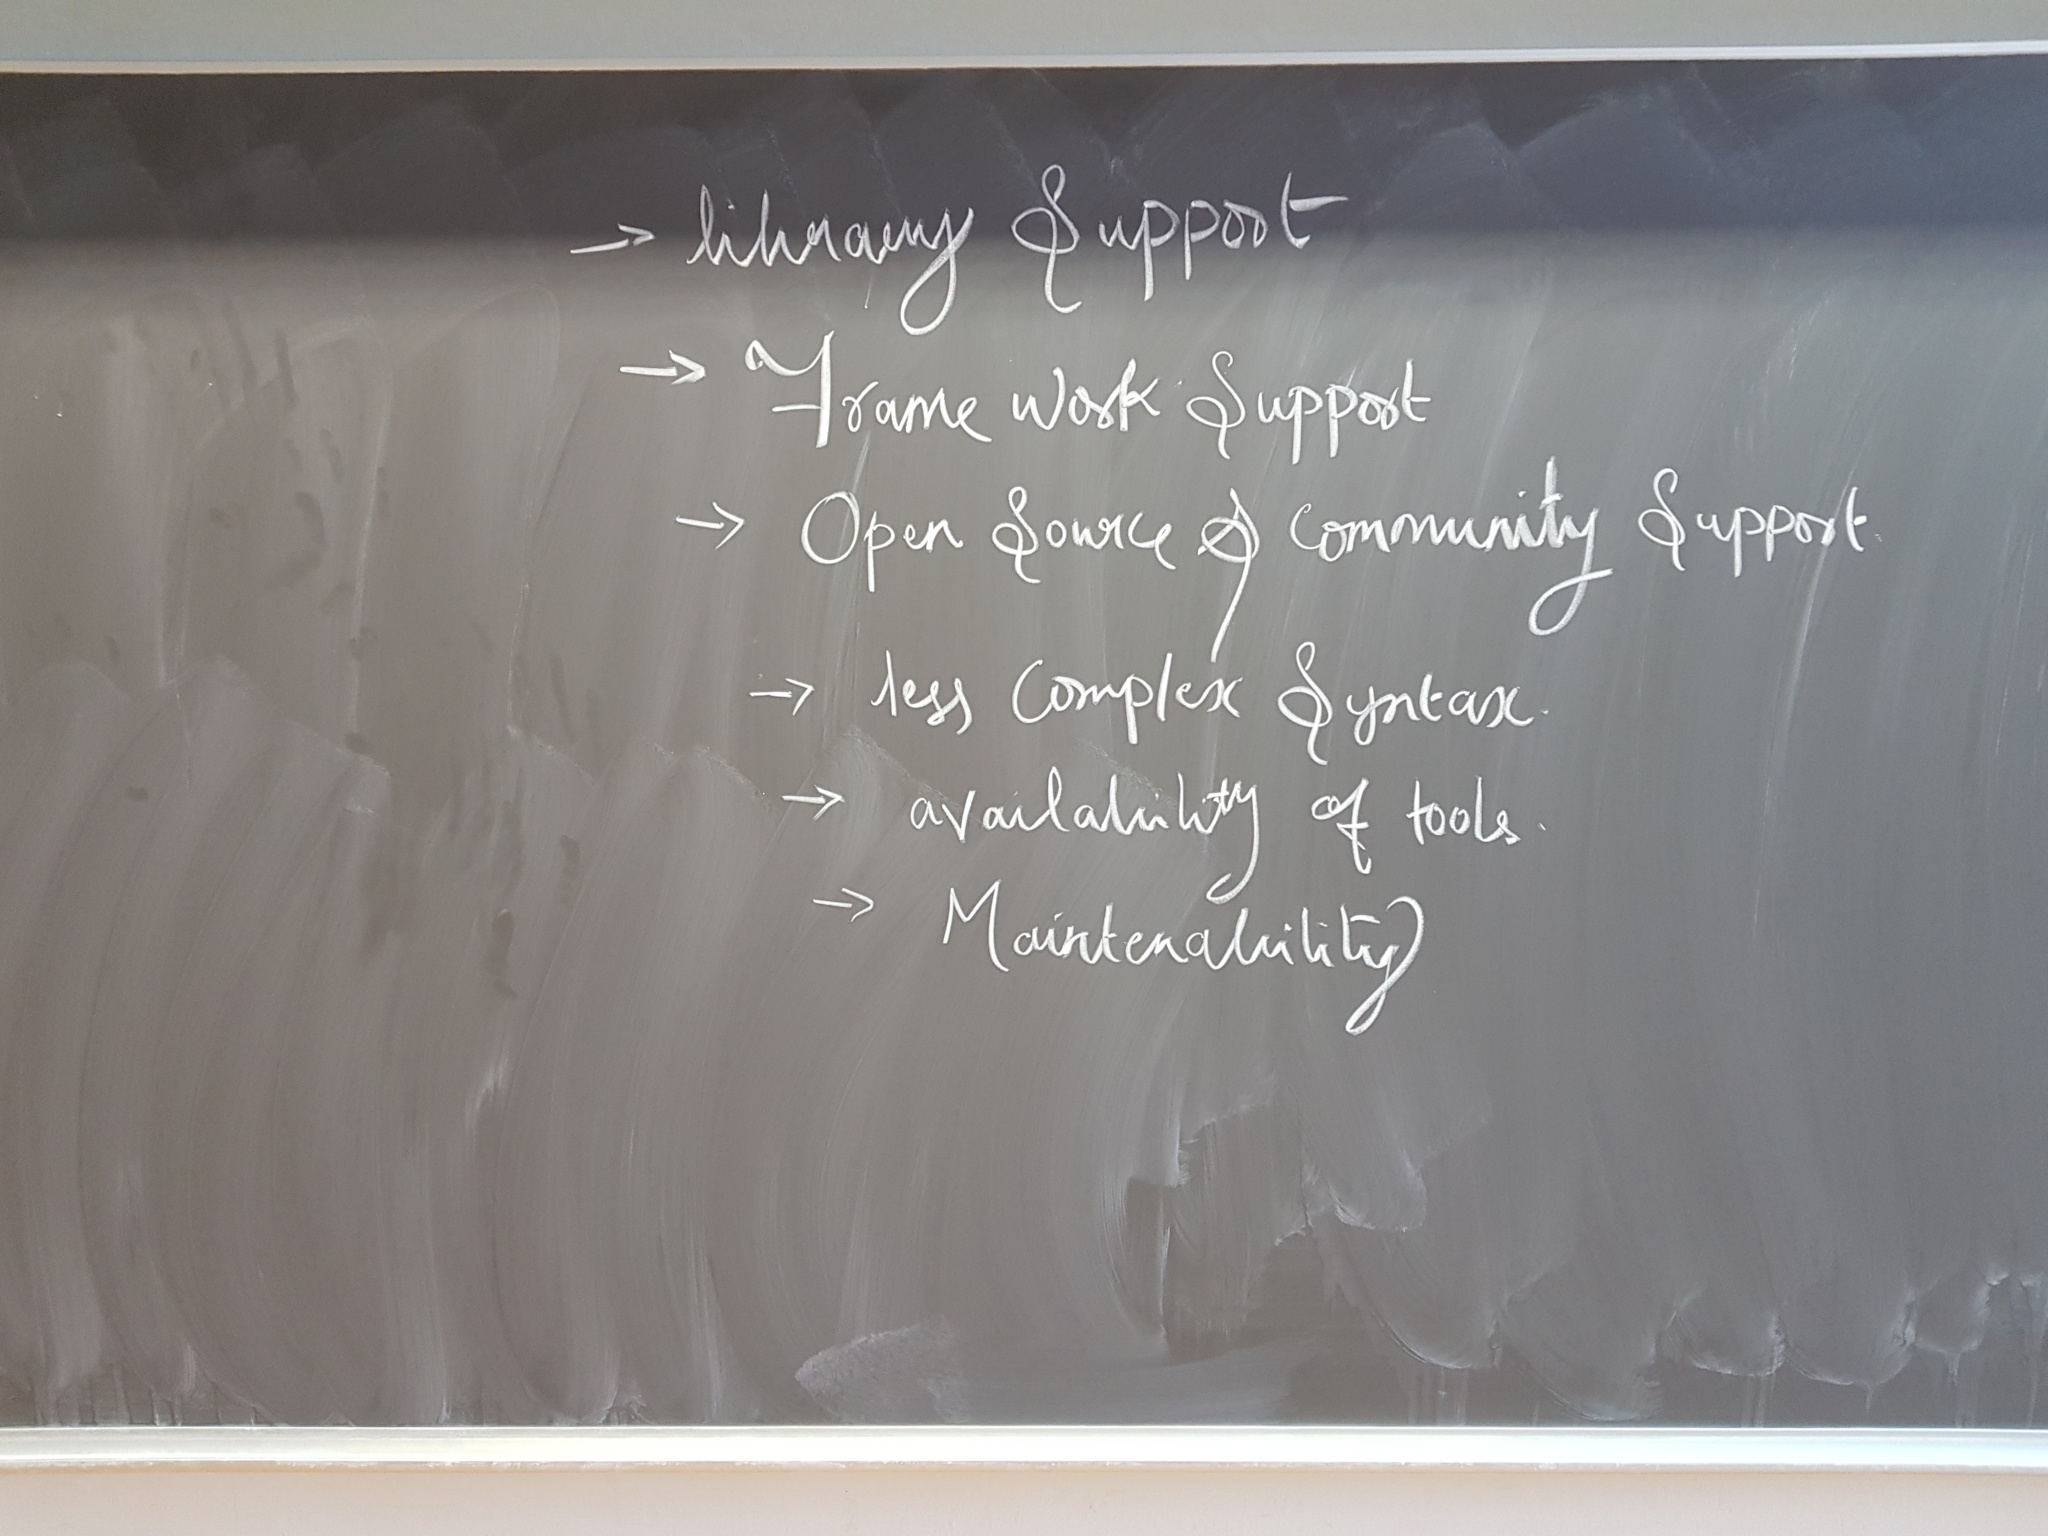 → library Support
→ Frame work Support
→ Open Source & community Support.
→ less Complex Syntax.
→ availability of tools.
→ Maintenability